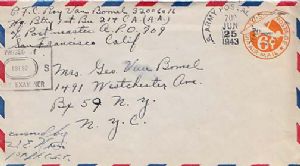 Pfc. Roy Van Bomel 32006016
Hq Btry 1st Bn 214 CA (AA)
c/o Postmaster A.P.O. 709
San Francisco Calif
U.S. ARMY POSTAL
JUN
25
1943
6¢
AIR MAIL
PASSED BY
S
EXAMINER
Mrs. Geo Van Bomel
1491 Westchester Ave
Bx 59 N.Y.
N.Y.C.
censored by